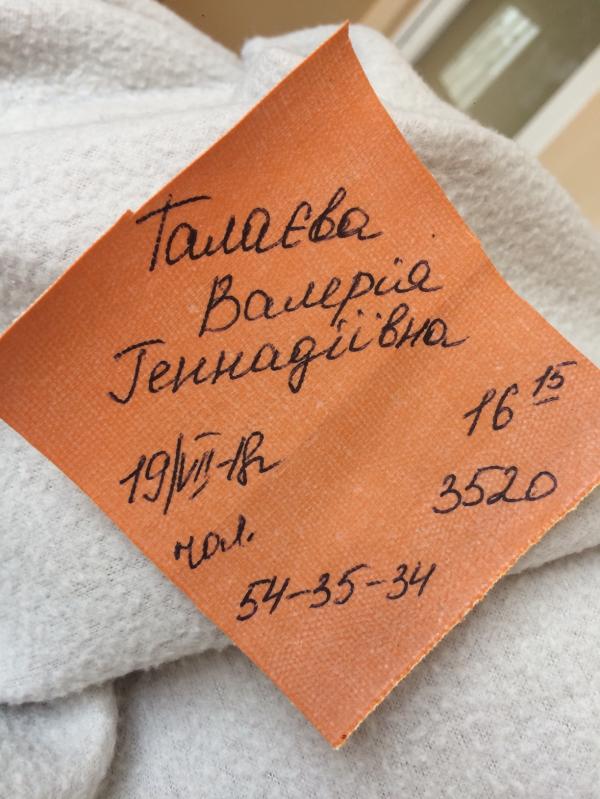 Талаєва
Валерія
Геннадіївна
19/VII-18г 16 15
чол. 3520
54-35-34